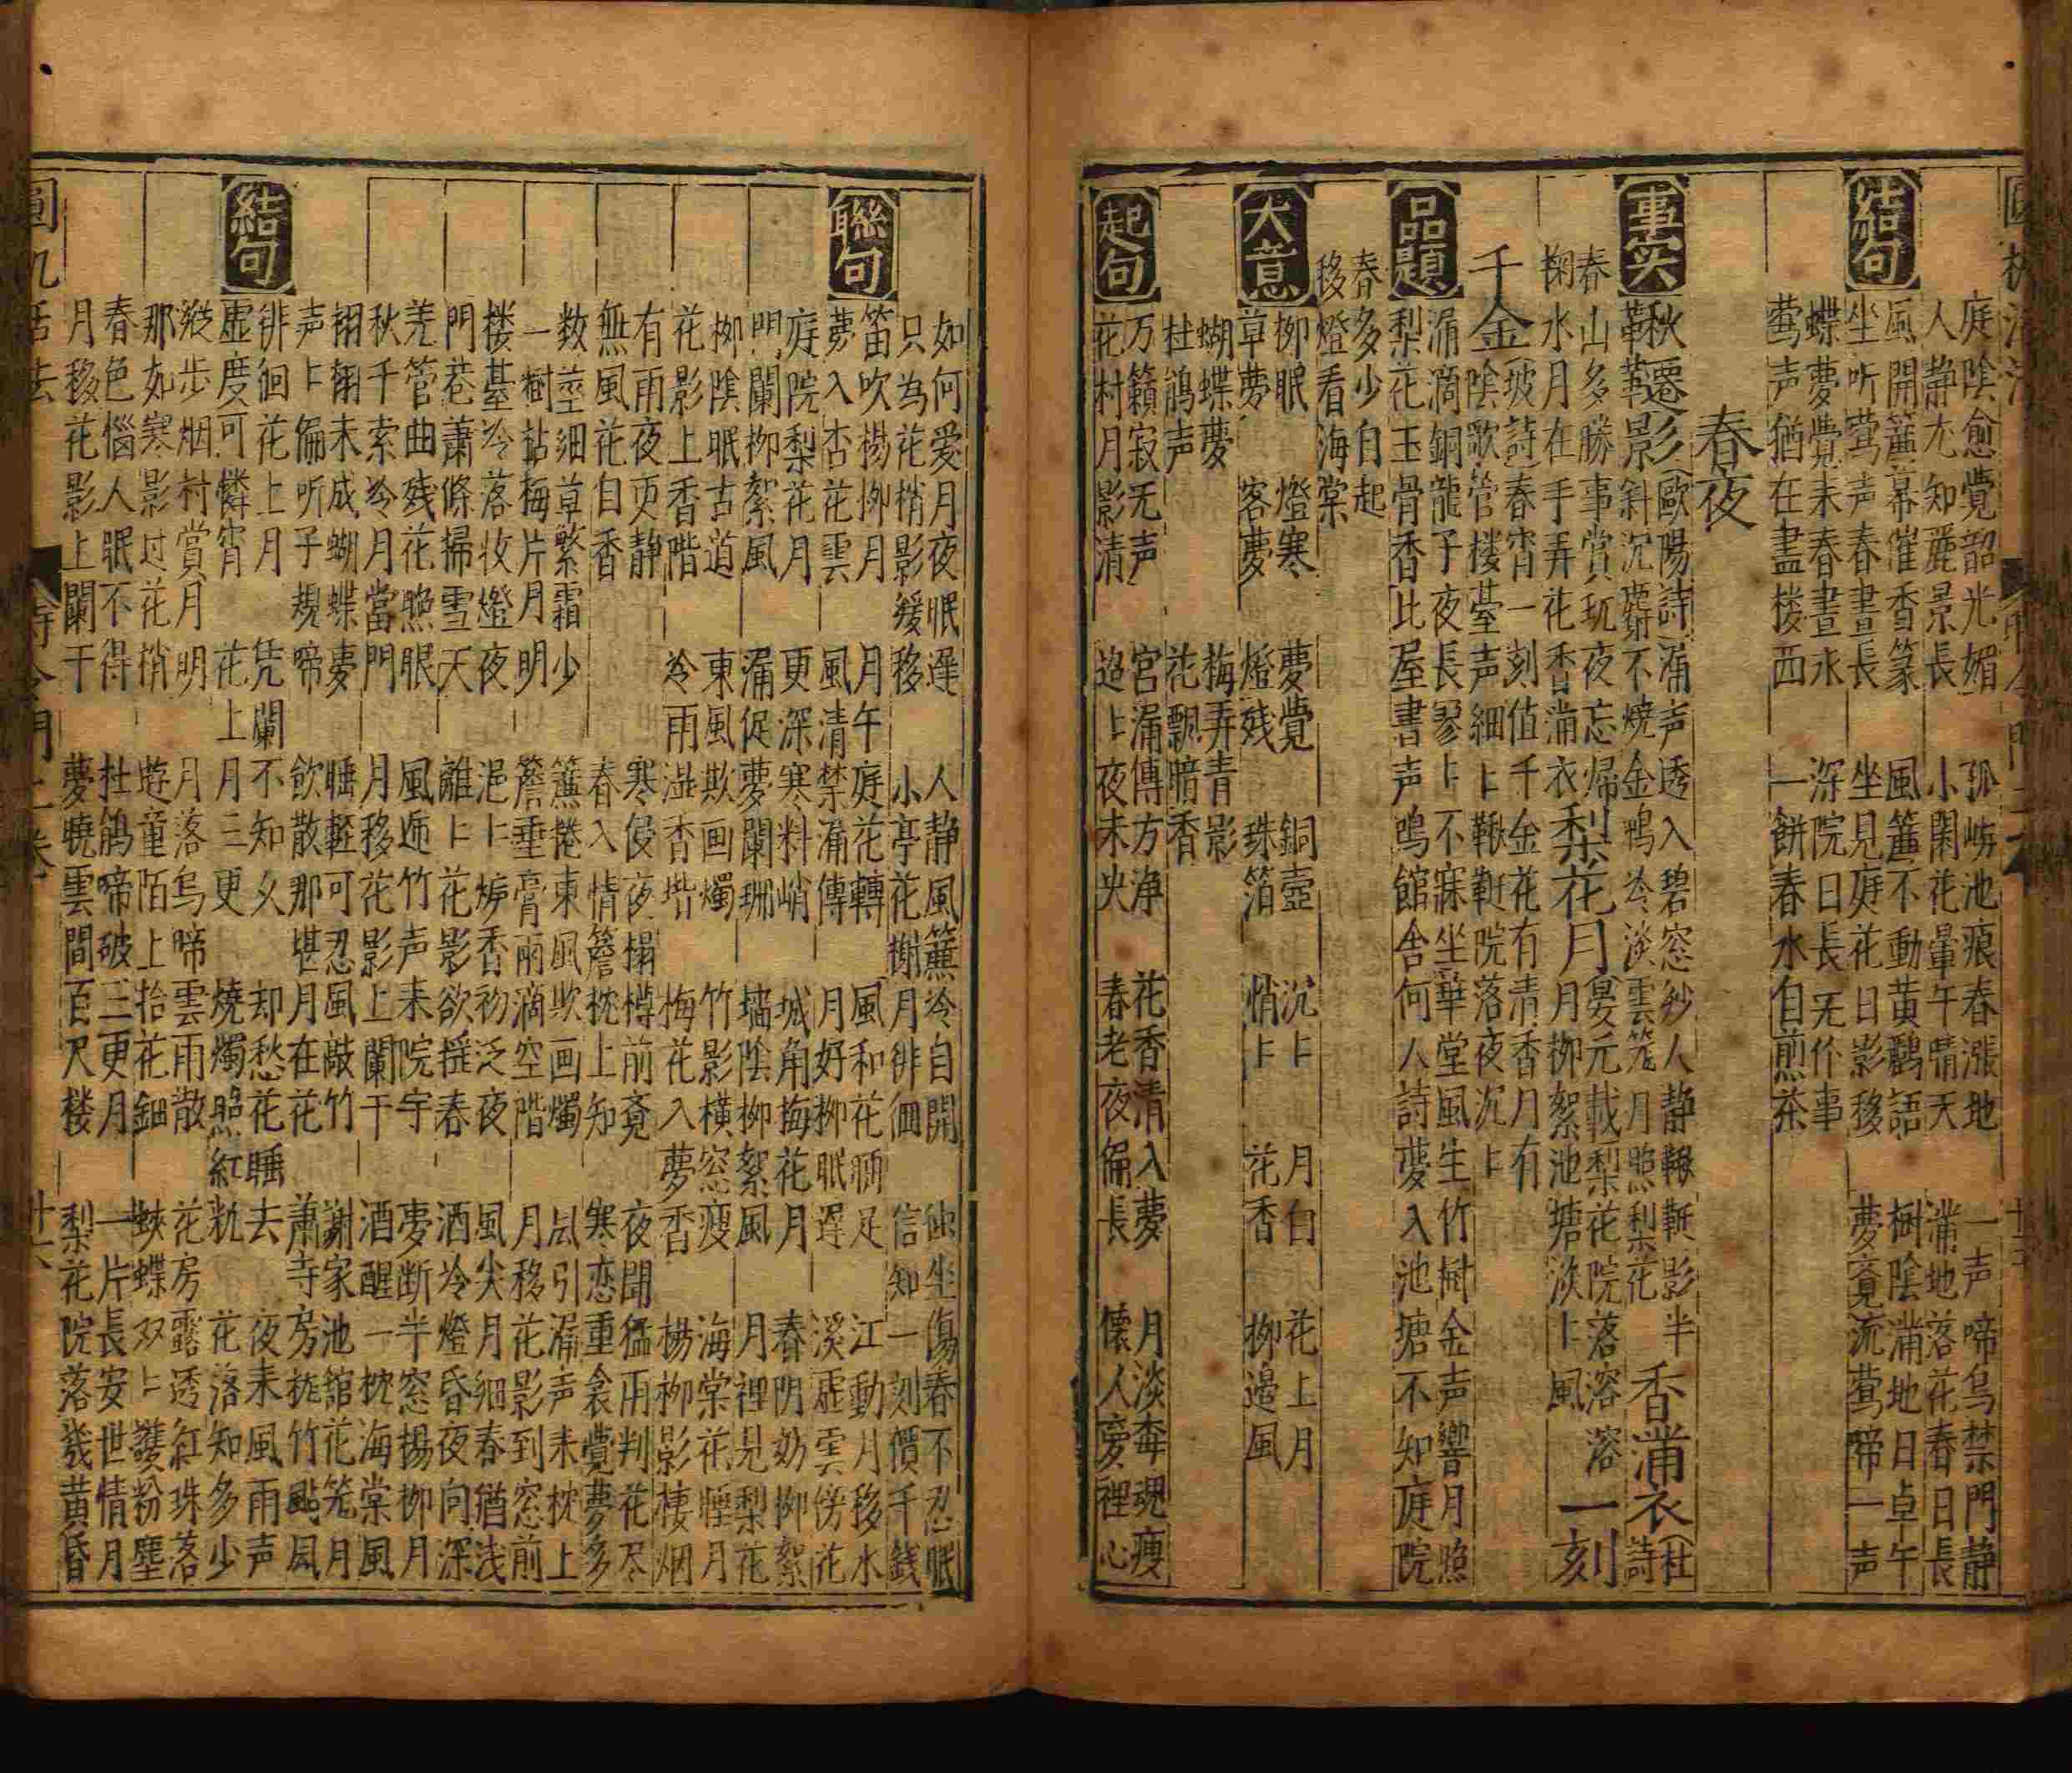 結句
庭陰愈覺韶光媚 孤嶼池痕春漲地 一声啼鸟禁門静
人静尢知麗景長 小閑花暈午晴天 滿地落花春日長
風開簾幕催香篆 風簾不動黄鸝語 樹陰滿地日卓午
坐听莺声春晝長 坐見庭花日影移 夢覚流莺啼一声
蝶夢覺来春晝水 深院日長无仆事
莺声猶在畫楼西 一餅春水自煎茶
春夜
事实
鞦韆影 歐陽詩漏声透入碧窓紗人静鞦韆影半
斜沉麝不燒金鴨冷淡雲笼月照梨花 香滿衣 杜詩
春山多勝事賞玩夜忘歸
掬水月在手弄花香滿衣 梨花月 晏元載梨花院落溶溶
月柳絮池塘淡卜風 一刻
千金 坡詩春宵一刻值千金花有清香月有
陰歌管楼臺声細卜鞦韆院落夜沉卜
品題
漏滴銅龍子夜長寥卜不寐坐華堂風生竹樹金声響月照
梨花玉骨香比屋書声鳴館舍何人詩夢入池塘不知庭院
春多少自起
移燈看海棠
大意
柳眠 燈寒 夢覺 銅壺 沉卜 月白 花上月
草夢 客夢 燈残 珠箔 悄卜 花香 柳邉風
蝴蝶夢 梅弄青影
杜鵑声 花飄暗香
起句
万籟寂无声 宮漏傳方浄 花香清入夢 月淡毒魂瘦
花村月影清 迢卜夜未央 春老夜偏長 懐人夢裡心
聯句
如何爱月夜眠遅 人静風簾冷自開 独坐傷春不忍眠
只為花梢影缓移 小亭花榭月徘徊 信知一刻價千錢
笛吹楊柳月 月午庭花轉 風和花睡足 江動月移水
夢入杏花雲 風清禁漏傳 月好柳眠遅 溪虚雲傍花
庭院梨花月 更深寒料峭 城角梅花月 春阴妨柳絮
門闌柳絮風 漏促夢闌珊 墻陰柳絮風 月裡見梨花
柳陰眠古道 東風欺画燭 竹影横窓瘦 海棠花睡月
花影上香階 冷雨湿香堦 梅花入夢香 楊柳影棲烟
有雨夜更静 寒侵夜榻樽前竟 夜聞猛雨判花尽
無風花自香 春入情簷枕上知 寒恋重衾覺夢多
数莖細草繁霜少 簾捲東風欺画燭 风引漏声来枕上
一樹㸃梅片月明 簷垂膏雨滴空階 月移花影到窓前
楼臺冷落妆燈夜 浥卜炉香初泛夜 風尖月細春猶浅
門巷蕭條掃雪天 離卜花影欲摇春 酒冷燈昏夜向深
羌管曲残花照眼 風逓竹声来院宇 夢断半窓楊柳月
秋千索冷月當門 月移花影上闌干 酒醒一枕海棠風
翩翩未成蝴蝶夢 睡輕可忍風敲竹 謝家池館花笼月
声卜偏听子規啼 飲散那堪月在花 蕭寺房栊竹颭風
結句
徘徊花上月 凭闌不知久 却愁花睡去 夜来風雨声
虚度可憐宵 花上月三更 燒燭照紅籹 花落知多少
漫步烟村賞月明 月落乌啼雲雨散 花房露透紅珠落
那如寒影过花梢 遊童陌上拾花鈿 蛺蝶双卜護粉塵
春色惱人眠不得 杜鵑啼破三更月 一片長安世情月
月移花影上闌干 夢曉雲間百尺楼 梨花院落幾黄昏